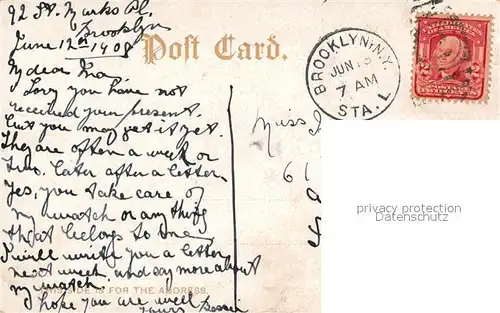 92 St. Marks Pl.
Brooklyn
June 12th 1908
Post Card.
My dear Ina
Sorry you have not
received your present.
but you may get it yet.
They are often a week or
two later after a letter
Yes, you take care of
my watch or any thing
that belongs to me
I will write you a letter
next week and say more about
my watch.
THIS SIDE IS FOR THE ADDRESS.
I hope you are well
yours Bessie
BROOKLYN N.Y.
JUN 13
7 AM
STA. L
Miss
61
privacy protection
Datenschutz